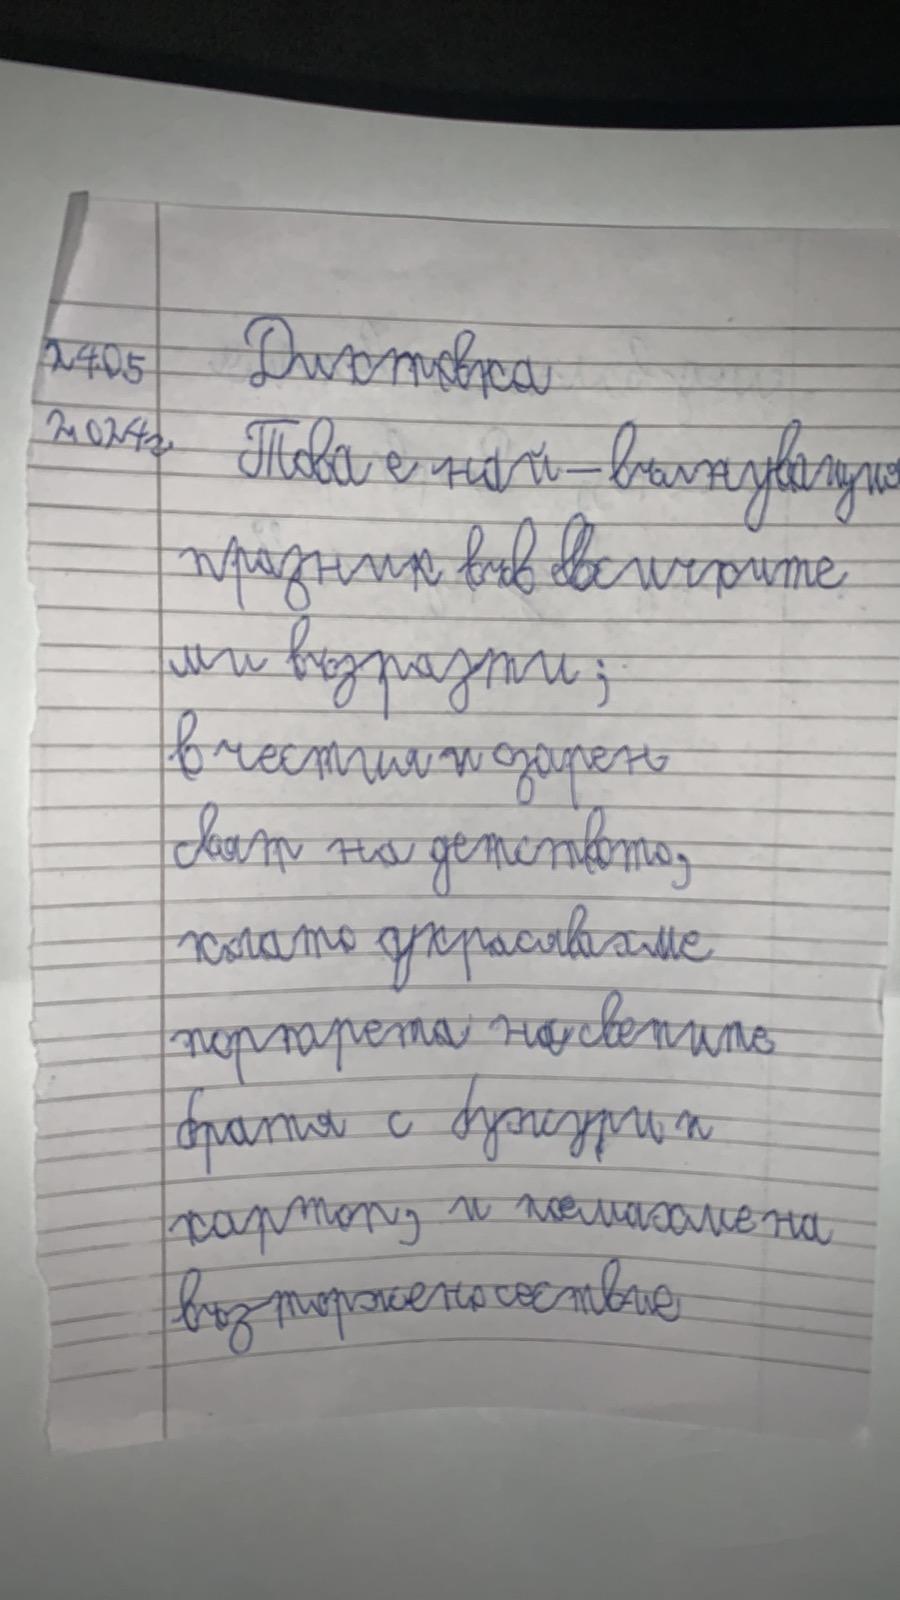 24.05
2024г
Диктовка
Това е най-вълнуващия
празник във всичките
ми възрасти;
в честия и озарен
свят на детството,
когато украсявахме
портрета на светите
братя с божури и
картон, и
възторжено